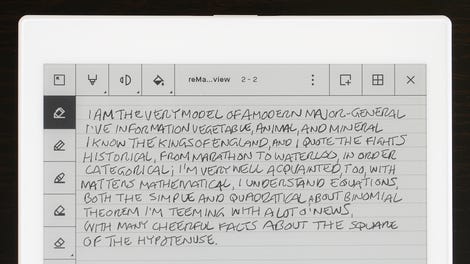 reMa...view 2-2
I AM THE VERY MODEL OF A MODERN MAJOR-GENERAL
I'VE INFORMATION VEGETABLE, ANIMAL, AND MINERAL
I KNOW THE KINGS OF ENGLAND, AND I QUOTE THE FIGHTS
HISTORICAL, FROM MARATHON TO WATERLOO, IN ORDER
CATEGORICAL; I'M VERY WELL ACQUAINTED, TOO, WITH
MATTERS MATHEMATICAL, I UNDERSTAND EQUATIONS,
BOTH THE SIMPLE AND QUADRATICAL, ABOUT BINOMIAL
THEOREM I'M TEEMING WITH A LOT O' NEWS,
WITH MANY CHEERFUL FACTS ABOUT THE SQUARE
OF THE HYPOTENUSE.